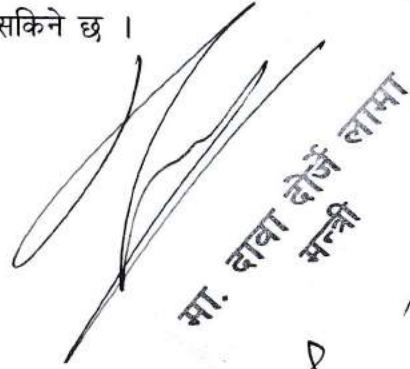 सकिने छ ।
मा. दावा दोर्जे लामा
मन्त्री